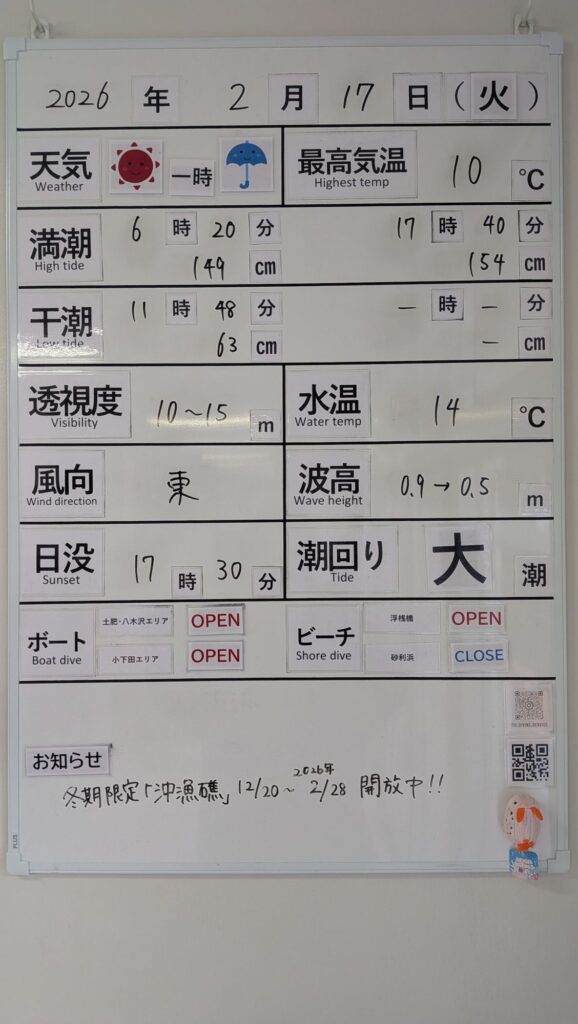 2026 年 2 月 17 日 (火)
天気 Weather 一時 最高気温 Highest temp 10 ℃
満潮 High tide 6 時 20 分 17 時 40 分
149 cm 154 cm
干潮 Low tide 11 時 48 分 — 時 — 分
63 cm — cm
透視度 Visibility 10〜15 m 水温 Water temp 14 ℃
風向 Wind direction 東 波高 Wave height 0.9 → 0.5 m
日没 Sunset 17 時 30 分 潮回り Tide 大 潮
ボート Boat dive 土肥・八木沢エリア OPEN ビーチ Shore dive 浮桟橋 OPEN
小下田エリア OPEN 砂利浜 CLOSE
お知らせ
冬期限定「沖漁礁」12/20〜2026年2/28 開放中!!
PLUS